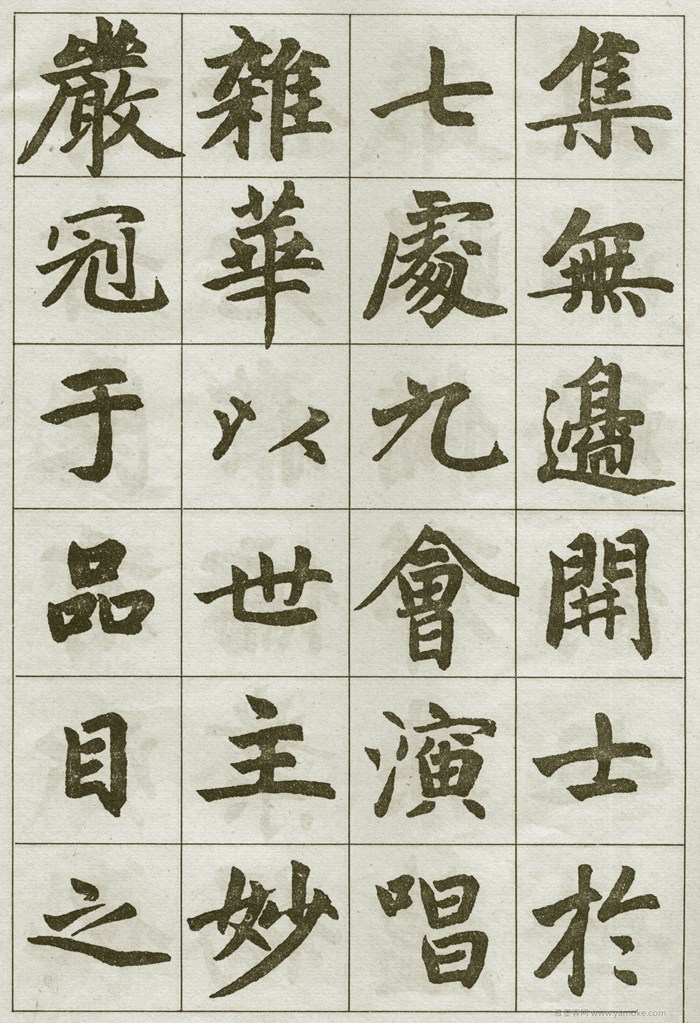 集無邊開士於
七處九會演唱
雜華以世主妙
嚴冠于品目之
www.yamoke.com